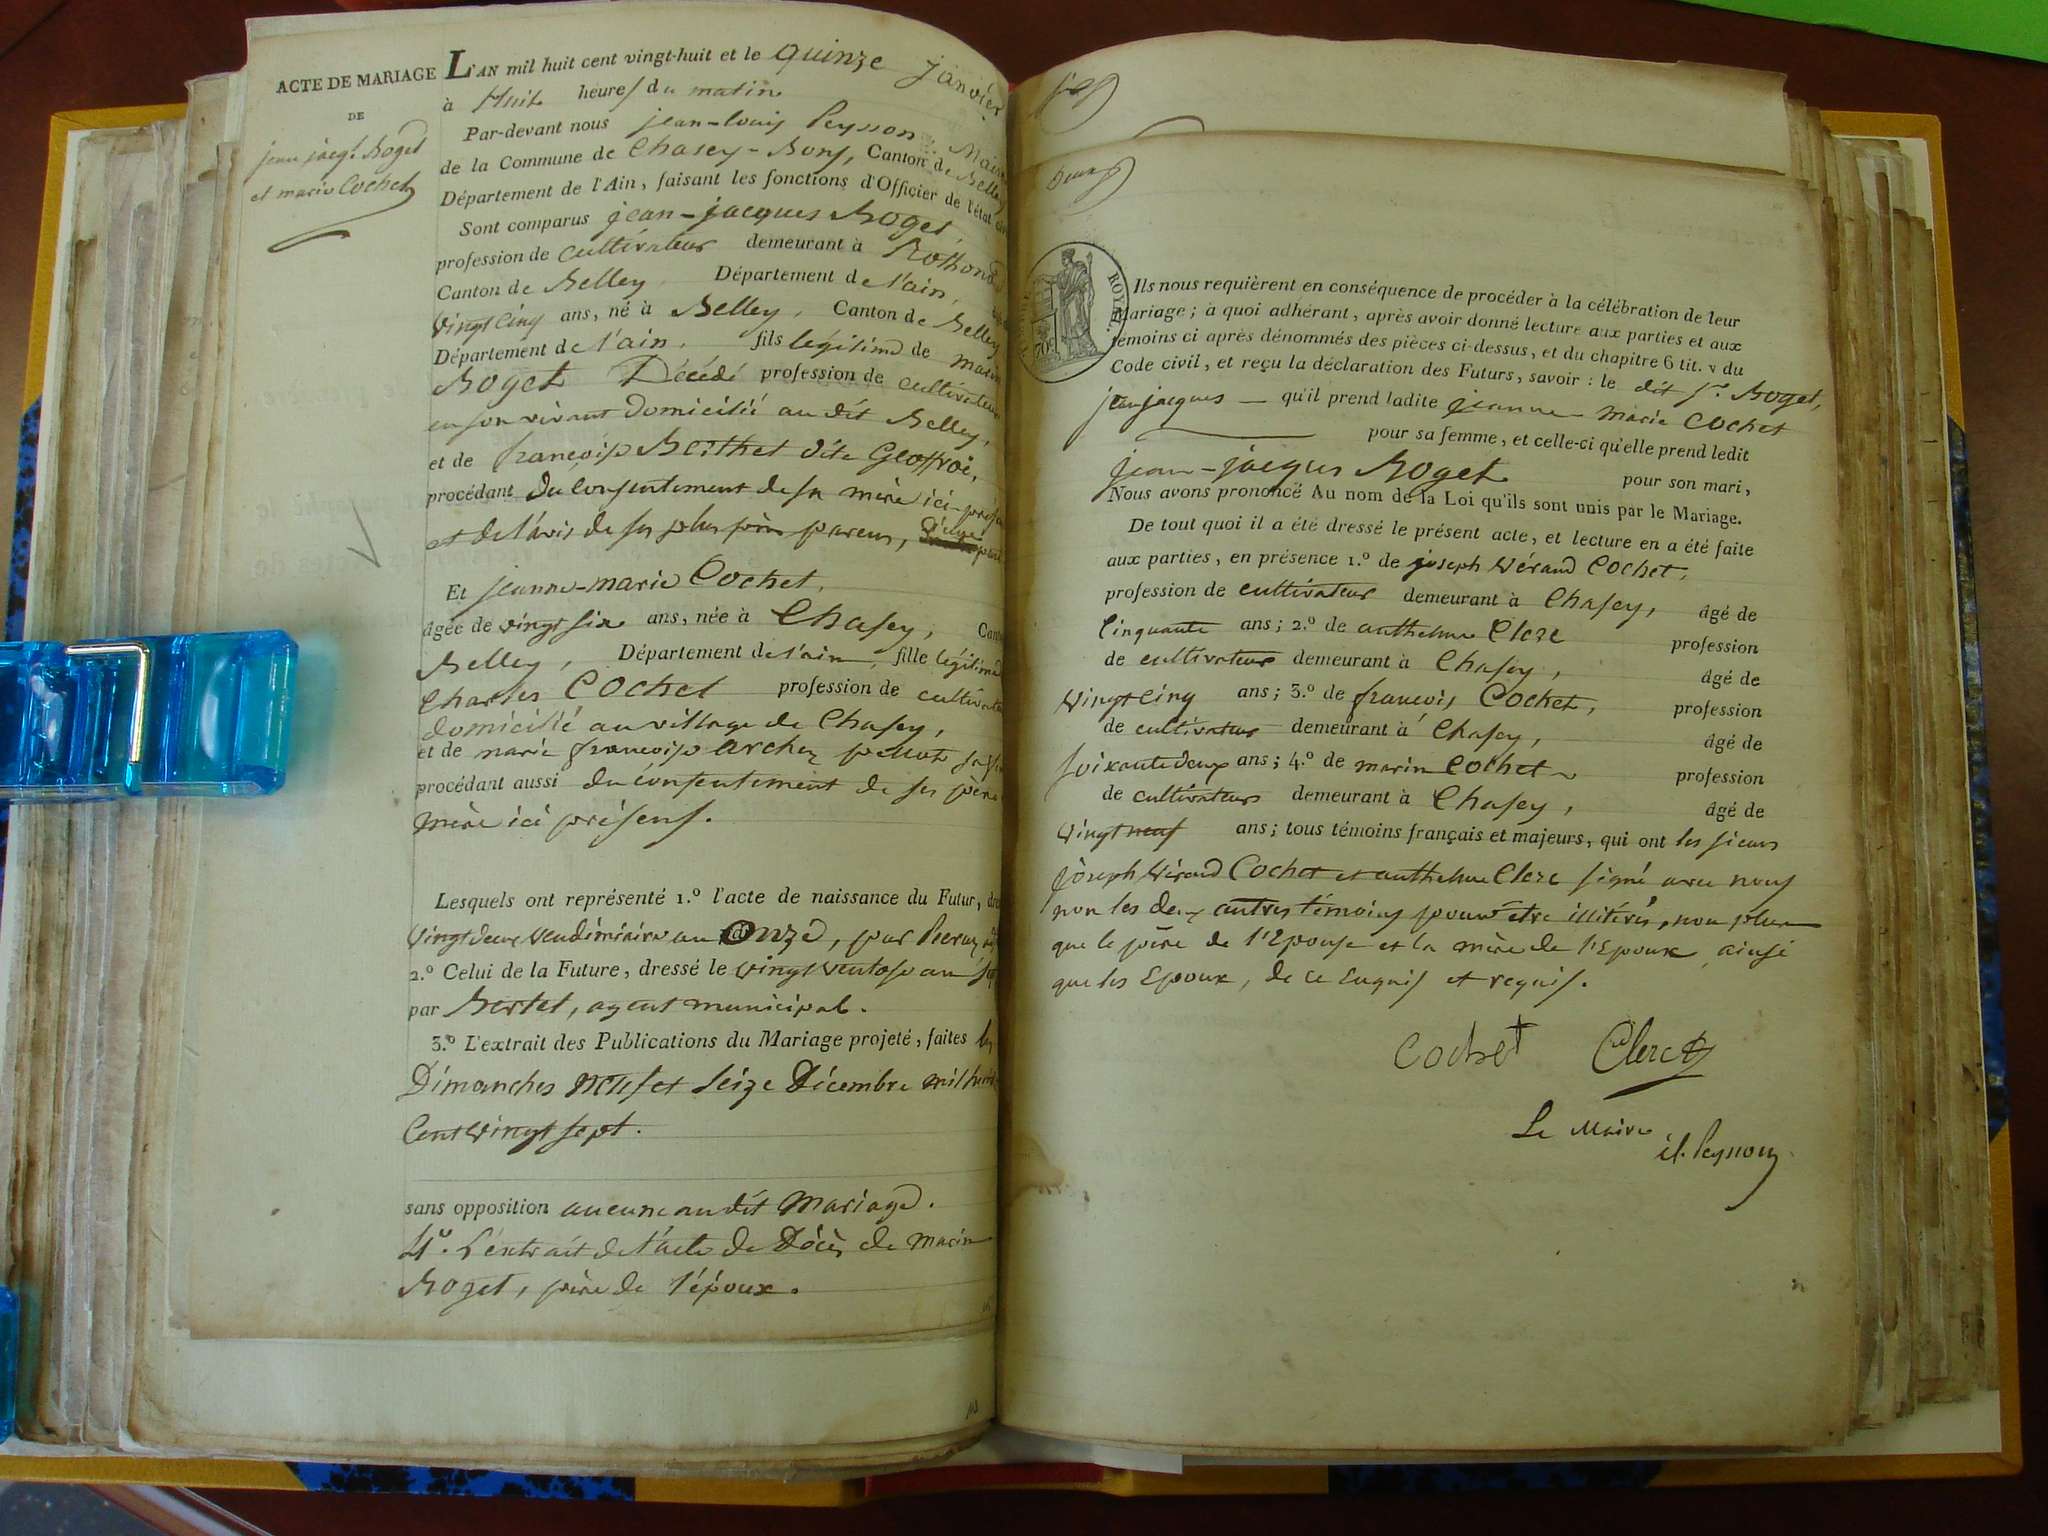 ACTE DE MARIAGE
DE
jean jacq.s Roget
et marie Cochet
L'AN mil huit cent vingt-huit et le quinze janvier
à Huit heures du matin
Par-devant nous jean-louis Peysson Maire
de la Commune de Chasey-Bons, Canton de Belley
Département de l'Ain, faisant les fonctions d'Officier de l'état
Sont comparus jean-jacques Roget,
profession de cultivateur demeurant à Rothonod
Canton de Belley Département de l'ain,
vingt cinq ans, né à Belley, Canton de Belley
Département de l'ain, fils légitime de marin
Roget Décédé profession de cultivateur
en son vivant domicilié au dit Belley,
et de françoise Berthet dite Geoffroi,
procédant du consentement de sa mère ici
et de l'avis de ses plus près parens,
Et jeanne-marie Cochet,
âgée de vingt six ans, née à Chasey,
Belley, Département de l'ain, fille légitime
Charles Cochet profession de
domicilié au village de Chasey,
et de marie françoise
procédant aussi du consentement de ses père
mère ici présens.
Lesquels ont représenté 1.º l'acte de naissance du Futur,
vingt deux vendémiaire an onze, par
2.º Celui de la Future, dressé le vingt ventose an
par Bertet, agent municipal.
3.º L'extrait des Publications du Mariage projeté, faites les
Dimanches neuf et seize Décembre mil huit
Cent vingt sept.
sans opposition aucune au dit Mariage.
4º. L'extrait de l'acte de Décès de marin
Roget, père de l'époux.
Deux
ROYAL
Ils nous requièrent en conséquence de procéder à la célébration de leur
Mariage; à quoi adhérant, après avoir donné lecture aux parties et aux
témoins ci après dénommés des pièces ci-dessus, et du chapitre 6 tit. v du
Code civil, et reçu la déclaration des Futurs, savoir: le dit s.r Roget,
jean jacques — qu'il prend ladite jeanne marie Cochet
pour sa femme, et celle-ci qu'elle prend ledit
jean-jacques Roget pour son mari,
Nous avons prononcé Au nom de la Loi qu'ils sont unis par le Mariage.
De tout quoi il a été dressé le présent acte, et lecture en a été faite
aux parties, en présence 1.º de joseph Vérand Cochet,
profession de cultivateur demeurant à Chasey, âgé de
Cinquante ans; 2.º de anthelme Clerc profession
de cultivateur demeurant à Chasey, âgé de
vingt cinq ans; 3.º de françois Cochet, profession
de cultivateur demeurant à Chasey, âgé de
soixante deux ans; 4.º de marin Cochet profession
de cultivateur demeurant à Chasey, âgé de
vingt neuf ans; tous témoins français et majeurs, qui ont les sieurs
joseph Vérand Cochet et anthelme Clerc signé avec nous
non les deux autres témoins pour être illitérés, non plus
que le père de l'Epouse et la mère de l'Epoux ainsi
que les Epoux, de ce enquis et requis.
Cochet Clerc
Le Maire
Peysson